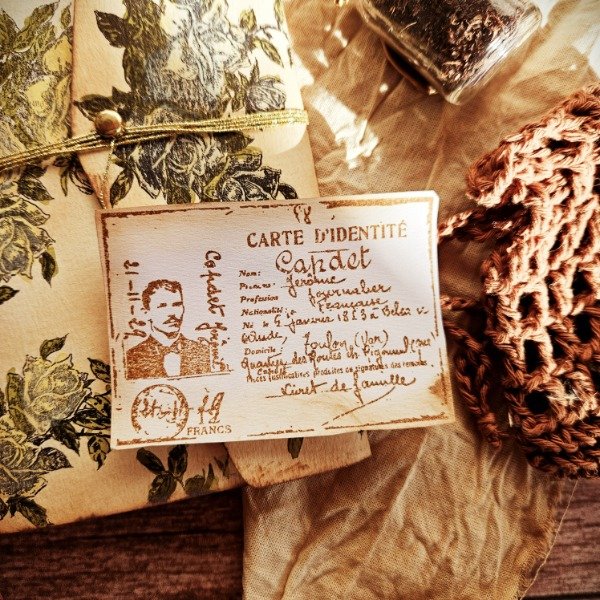 CARTE D'IDENTITÉ
Nom: Capdet
Prénoms: Jérome
Profession Journalier
Nationalité: Française
Né le 5 Janvier 1863 à
Aude,
Domicile: Toulon (Var)
Quartier des Routes
Pièces justificatives produites ou signatures des témoins
Livret de famille
Capdet Jérome
FRANCS